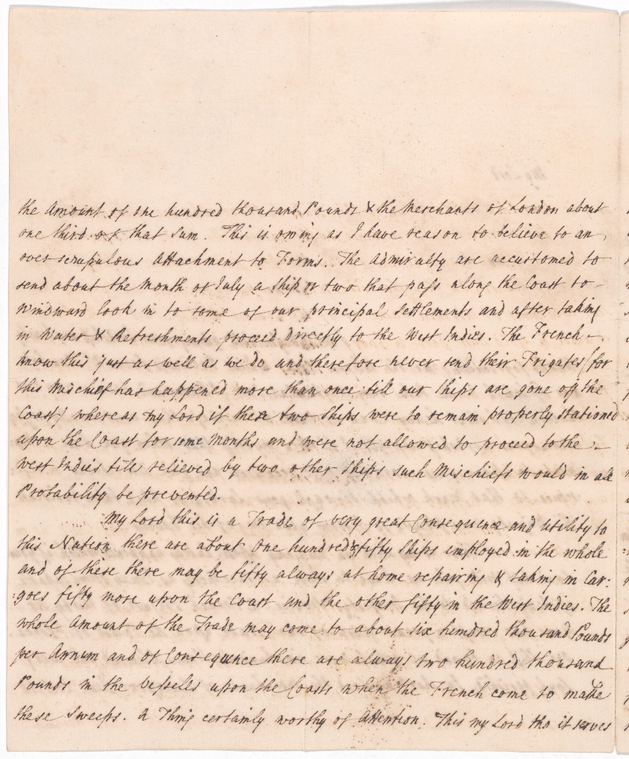 the Amount of one hundred thousand Pounds & the Merchants of London about
one third of that Sum. This is owing as I have reason to believe to an
over scrupulous Attachment to Forms. The Admiralty are accustomed to
send about the Month of July a Ship or two that pass along the Coast to
Windward look in to some of our principal Settlements and after taking
in Water & Refreshments proceed directly to the West Indies. The French
know this just as well as we do and therefore never send their Frigates (for
this Mischief has happened more than once till our Ships are gone off the
Coast) whereas my Lord if these two Ships were to remain properly stationed
upon the Coast for some Months and were not allowed to proceed to the
West Indies till relieved by two other Ships such Mischiefs would in all
Probability be prevented.
My Lord this is a Trade of very great Consequence and utility to
this Nation there are about One hundred & fifty Ships employed in the whole
and of these there may be fifty always at home repairing & taking in Car-
:goes fifty more upon the Coast and the other fifty in the West Indies. The
whole Amount of the Trade may come to about six hundred thousand Pounds
per Annum and of Consequence there are always two hundred thousand
Pounds in the vessels upon the Coasts when the French come to make
these Sweeps. A Thing certainly worthy of attention. This my Lord tho it serves